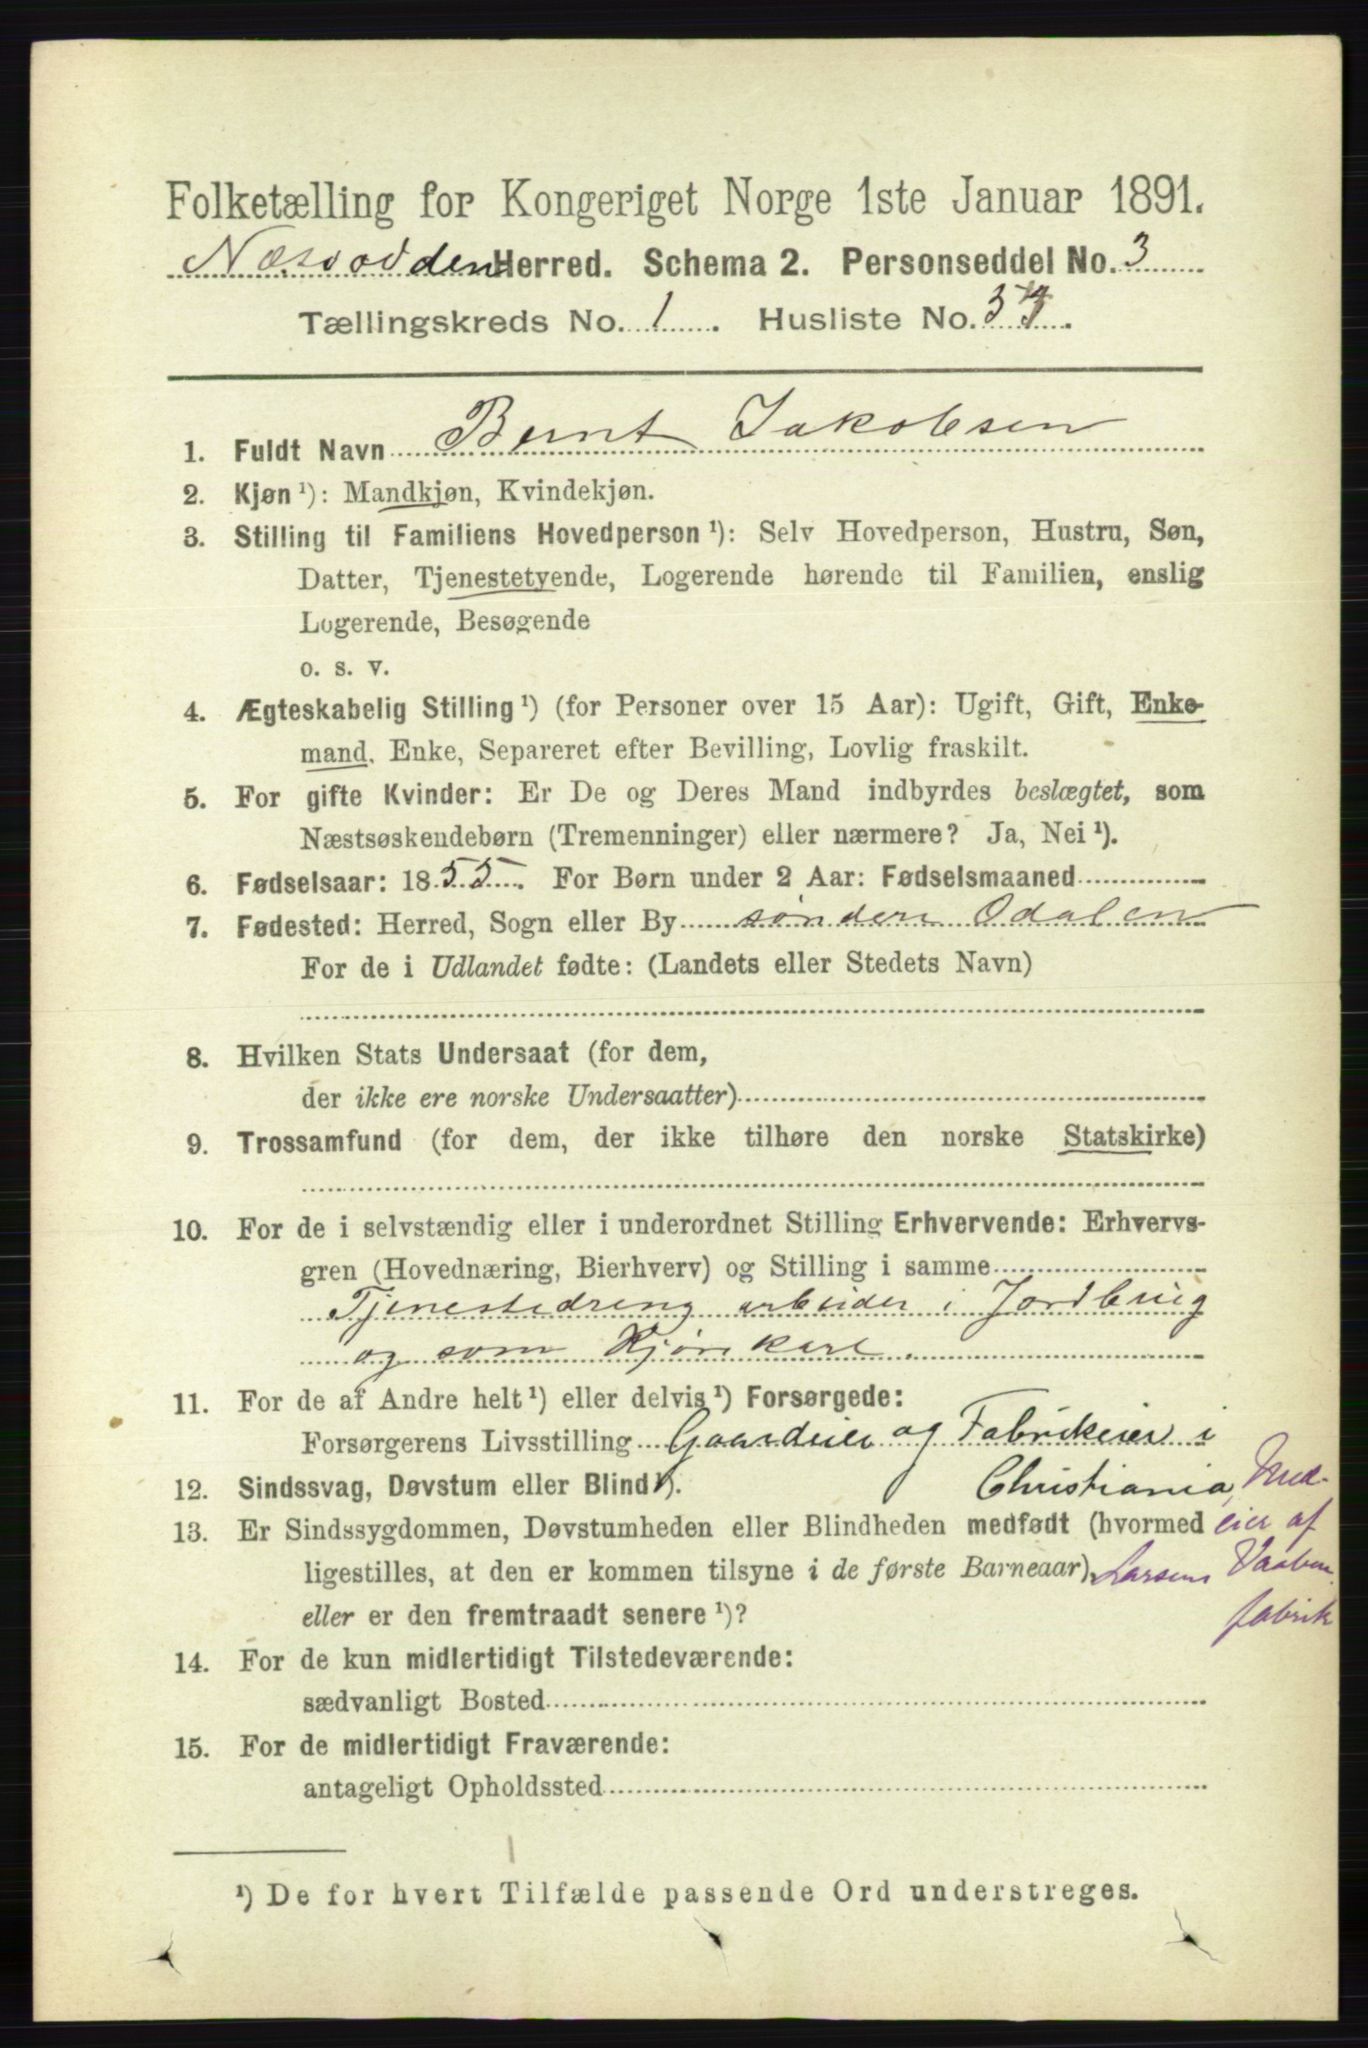 Folketælling for Kongeriget Norge 1ste Januar 1891.
Næsodden Herred. Schema 2. Personseddel No. 3
Tællingskreds No. 1. Husliste No. 33.
1. Fuldt Navn Bernt Jakobsen
2. Kjøn ¹): Mandkjøn, Kvindekjøn.
3. Stilling til Familiens Hovedperson ¹): Selv Hovedperson, Hustru, Søn,
Datter, Tjenestetyende, Logerende hørende til Familien, enslig
Logerende, Besøgende
o. s. v.
4. Ægteskabelig Stilling ¹) (for Personer over 15 Aar): Ugift, Gift, Enke-
mand, Enke, Separeret efter Bevilling, Lovlig fraskilt.
5. For gifte Kvinder: Er De og Deres Mand indbyrdes beslægtet, som
Næstsøskendebørn (Tremenninger) eller nærmere? Ja, Nei ¹).
6. Fødselsaar: 1855. For Børn under 2 Aar: Fødselsmaaned
7. Fødested: Herred, Sogn eller By søndere Odalen
For de i Udlandet fødte: (Landets eller Stedets Navn)
8. Hvilken Stats Undersaat (for dem,
der ikke ere norske Undersaatter)
9. Trossamfund (for dem, der ikke tilhøre den norske Statskirke)
10. For de i selvstændig eller i underordnet Stilling Erhvervende: Erhvervs-
gren (Hovednæring, Bierhverv) og Stilling i samme
Tjenestedreng arbeider i Jordbrug
og som Kjørekarl.
11. For de af Andre helt ¹) eller delvis ¹) Forsørgede:
Forsørgerens Livsstilling Gaardeier og Fabrikeier i
12. Sindssvag, Døvstum eller Blind ¹). Christiania, Med-
13. Er Sindssygdommen, Døvstumheden eller Blindheden medfødt (hvormed eier af
ligestilles, at den er kommen tilsyne i de første Barneaar), Larsens Vaaben
eller er den fremtraadt senere ¹)? fabrik
14. For de kun midlertidigt Tilstedeværende:
sædvanligt Bosted
15. For de midlertidigt Fraværende:
antageligt Opholdssted
¹) De for hvert Tilfælde passende Ord understreges.